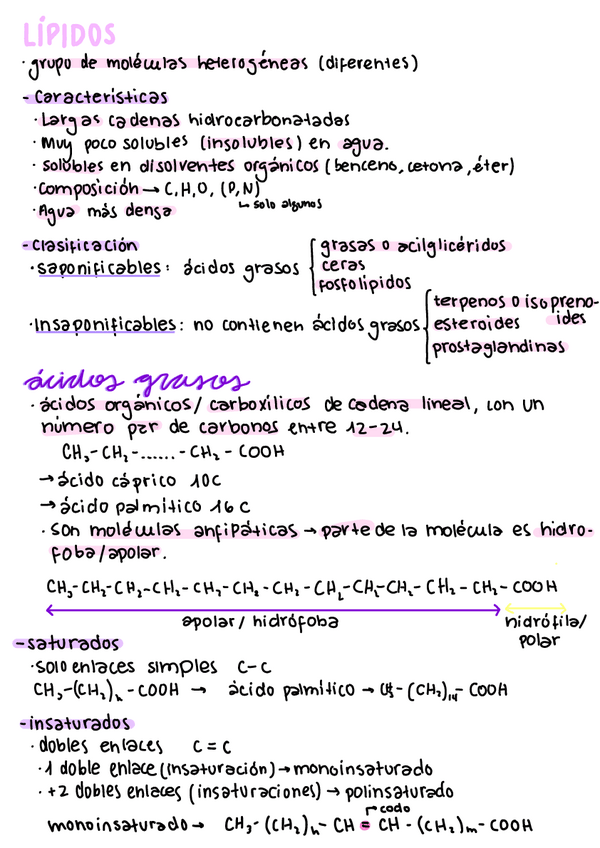 LÍPIDOS
· grupo de moléculas heterogéneas (diferentes)
- Características
· Largas cadenas hidrocarbonatadas
· Muy poco solubles (insolubles) en agua.
· solubles en disolventes orgánicos (benceno, cetona, éter)
· composición → C, H, O, (P, N)
↳ solo algunos
· Agua más densa
- Clasificación
· saponificables: ácidos grasos { grasas o acilglicéridos
ceras
fosfolípidos
· Insaponificables: no contienen ácidos grasos { terpenos o isoprenoides
esteroides
prostaglandinas
ácidos grasos
· ácidos orgánicos/ carboxílicos de cadena lineal, con un
número par de carbonos entre 12-24.
CH₃-CH₂-......-CH₂-COOH
→ ácido cáprico 10C
→ ácido palmítico 16 C
· son moléculas anfipáticas → parte de la molécula es hidro-
foba/apolar.
CH₃-CH₂-CH₂-CH₂-CH₂-CH₂-CH₂-CH₂-CH₂-CH₂-CH₂-CH₂-COOH
apolar/ hidrófoba hidrófila/
polar
- saturados
· solo enlaces simples C-C
CH₃-(CH₂)ₙ-COOH → ácido palmítico → CH₃-(CH₂)₁₄-COOH
- insaturados
· dobles enlaces C=C
· 1 doble enlace (insaturación) → monoinsaturado
· +2 dobles enlaces (insaturaciones) → polinsaturado
↱ codo
monoinsaturado → CH₃-(CH₂)ₙ-CH=CH-(CH₂)ₘ-COOH